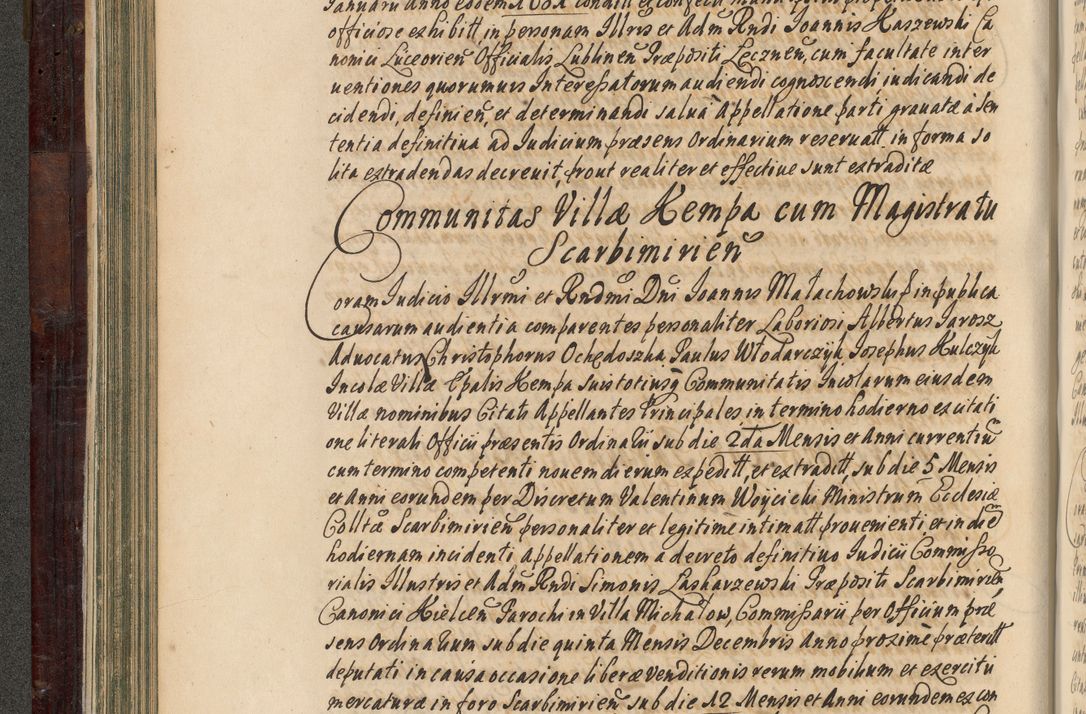 officiose exhibitt in personam Illris et Adm Rndi Joannis Kaszewski Ca
nonici Luceorien Officialis Lublinen Præpositi Lecznen, cum facultate inter
uentiones quorumuis Interessatorum audiendi cognoscendi, iudicandi de
cidendi, definien, et determinandi salua Appellatione parti grauatæ à sen
tentia definitiua ad Judicium præsens Ordinarium reseruatt in forma so
lita extradendas decreuit, prout realiter et effectiue sunt extraditæ
Communitas Villæ Kempa cum Magistratu
Scarbimirien
Coram Judicio Illrmi et Rndmi Dni Joannis Malachowski in publica
causarum audientia comparentes personaliter Laboriosi Albertus Jarosz
Aduocatus Christophorus Ochędoszka Paulus Włodarczyk Josephus Kulczyk
Incolæ Villæ Epalis Kempa suis totiusq Communitatis Incolarum eiusdem
Villæ nominibus Citati Appellantes Principales in termino hodierno ex citati
one literali Officii præsentis Ordinarii sub die 2da Mensis et Anni currentium
cum termino competenti nouem dierum expeditt, et extraditt, sub die 5 Mensis
et Anni eorundem per Discretum Valentinum Woycicki Ministrum Ecclesiæ
Colltæ Scarbimirien personaliter et legitime intimatt prouenienti et in diem
hodiernam incidenti Appellationem a decreto definitiuo Judicii Commisso
rialis Illustris et Adm Rndi Simonis Laskarzewski Præpositi Scarbimirien
Canonici Kielcen Parochi in Villa Michałow, Commissarii per Officium præ
sens Ordinarium sub die quinta Mensis Decembris Anno proxime præteritt
deputati in causa occasione liberæ venditionis rerum mobilium et exercitii
mercaturæ in foro Scarbimirien sub die 12 Mensis et Anni eorundem ex con